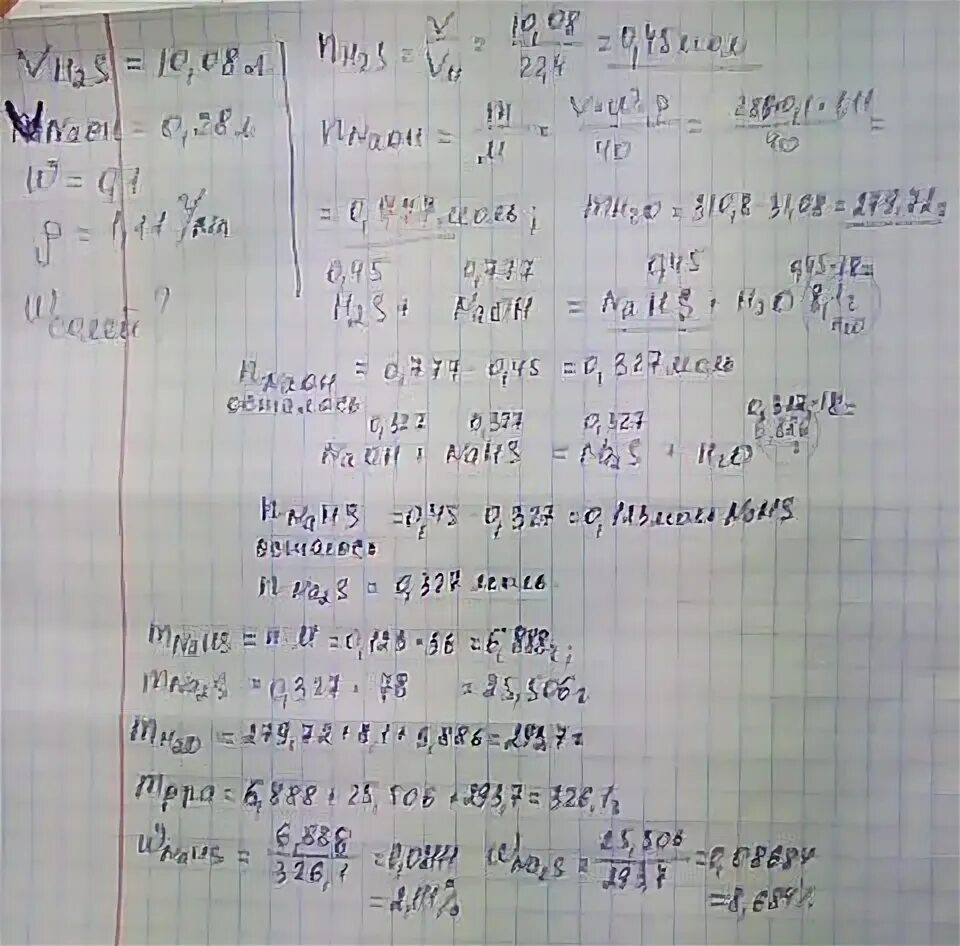 V H₂S = 10,08 л
V NaOH = 0,28 л
W = 0,1
ρ = 1,11 г/мл
W солей ?
n H₂S = V/Vм = 10,08/22,4 = 0,45 моль
n NaOH = m/M = V·W·ρ/40 = 280·0,1·1,11/40 =
= 0,777 моль; mH₂O = 310,8 - 31,08 = 279,72г
0,45 0,777 0,45 0,45·18=
H₂S + NaOH = NaHS + H₂O 8,1г
H₂O
n NaOH = 0,777 - 0,45 = 0,327 моль
осталось
0,327 0,327 0,327 0,327·18=
NaOH + NaHS = Na₂S + H₂O
n NaHS = 0,45 - 0,327 = 0,123 моль NaHS
осталось
n Na₂S = 0,327 моль
m NaHS = n·M = 0,123·56 = 6,888г;
m Na₂S = 0,327·78 = 25,506г
m H₂O = 279,72 + 8,1 + 5,886 = 293,7г
m р-ра = 6,888 + 25,506 + 293,7 = 326,1г
W NaHS = 6,888/326,1 = 0,0211 W Na₂S = 25,506/293,7 = 0,08684
= 2,11% = 8,684%